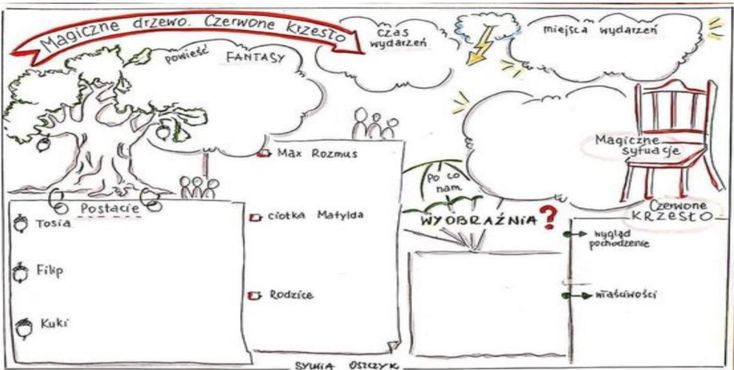 Magiczne drzewo. Czerwone krzesło
powieść FANTASY
czas
wydarzeń
miejsca wydarzeń
Magiczne
sytuacje
Czerwone
KRZESŁO
Postacie
Tosia
Filip
Kuki
Max Rozmus
ciotka Matylda
Rodzice
Po co
nam
WYOBRAŹNIA?
wygląd
pochodzenie
właściwości
SYLWIA OSZCZYK